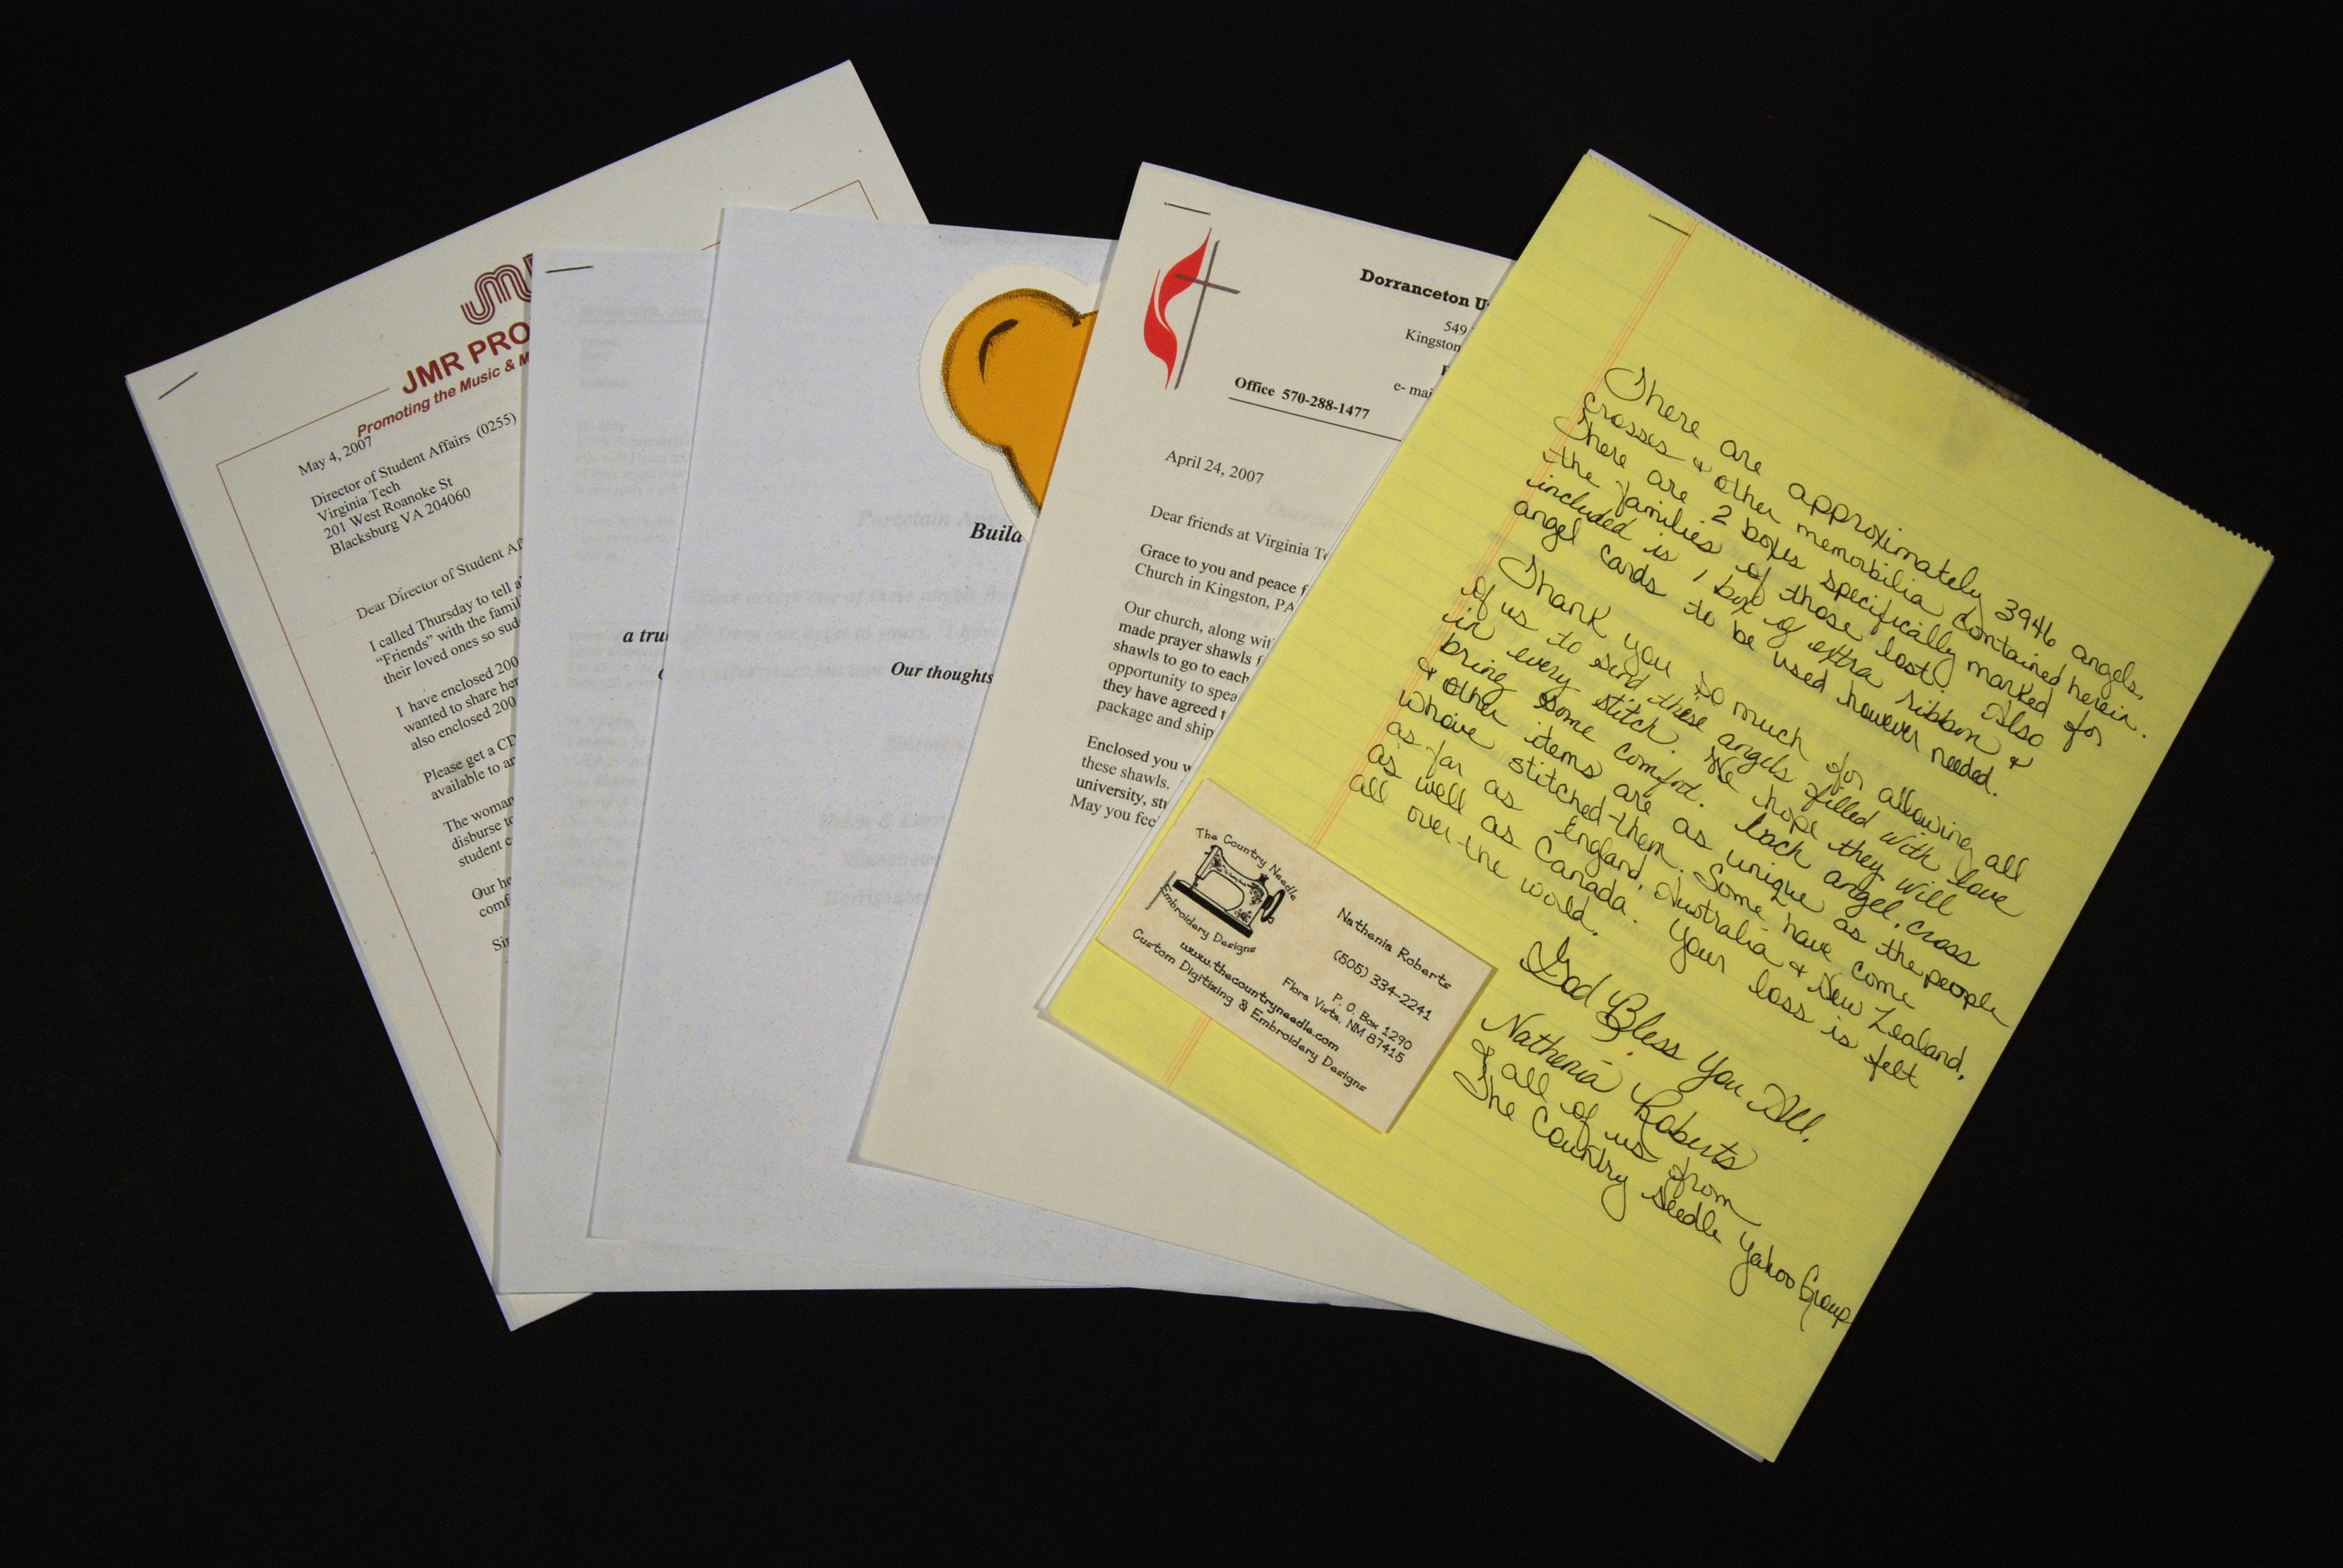 JMR PRO
Promoting the Music & M
May 4, 2007
Director of Student Affairs (0255)
Virginia Tech
201 West Roanoke St
Blacksburg VA 204060
Dear Director of Student Af
I called Thursday to tell a
"Friends" with the famil
their loved ones so sud
I have enclosed 200
wanted to share her
also enclosed 200
Please get a CD
available to an
The woman
disburse to
student c
Our he
comf
Sin
a tru
Build
Our thoughts
Dorranceton U
549
Kingston
e- mai
Office 570-288-1477
April 24, 2007
Dear friends at Virginia Te
Grace to you and peace f
Church in Kingston, PA
Our church, along wit
made prayer shawls f
shawls to go to each
opportunity to spea
they have agreed t
package and ship
Enclosed you w
these shawls.
university, stu
May you feel
There are approximately 3946 angels,
crosses & other memorbilia contained herein.
There are 2 boxes specifically marked for
the families of those lost. Also
included is 1 box of extra ribbon &
angel cards to be used however needed.
Thank you so much for allowing all
of us to send these angels filled with love
in every stitch. We hope they will
bring some comfort. Each angel, cross
& other items are as unique as the people
whove stitched them. Some have come
as far as England, Australia & New Zealand,
as well as Canada. Your loss is felt
all over the world.
God Bless You All,
Nathenia Roberts
& all of us from
The Country Needle Yahoo Group
The Country Needle
Embroidery Designs
Nathenia Roberts
(505) 334-2241
P. O. Box 1290
Flora Vista, NM 87415
www.thecountryneedle.com
Custom Digitizing & Embroidery Designs